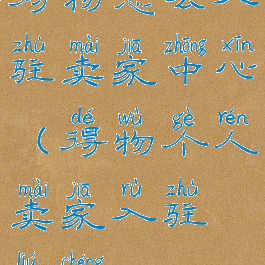 zhù mài jiā zhōng xīn
驻卖家中心
dé wù gè rén
（得物个人
mài jiā rù zhù
卖家入驻
liú chéng